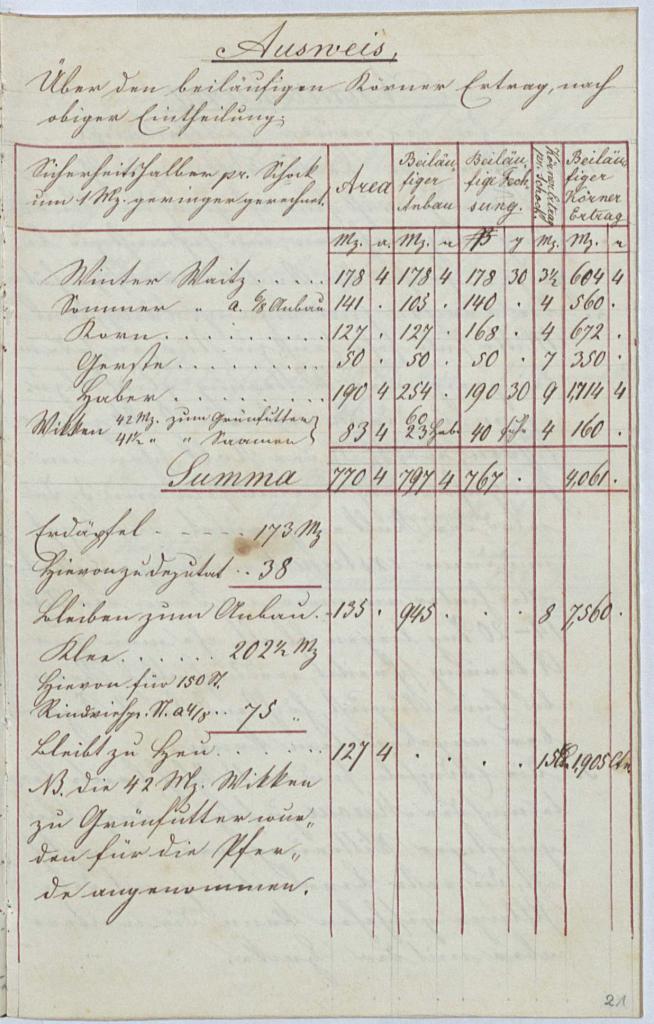 Ausweis,
Über den beiläufigen Körner Ertrag, nach
obiger Eintheilung:
Sicherheitshalber pr. Schock
um 1 Mz. geringer gerechnet.
Area
Beiläu-
figer
Anbau
Beiläu-
fige Fech-
sung.
Körner Ertrag
pr. Schock
Beiläu-
figer
Körner
Ertrag
Mz. a. Mz. a ß g Mz. Mz. a
Winter Waitz . . . . . 178 4 178 4 178 30 3½ 604 4
Sommer " a. 6/8 Anbau 141 . 105 . 140 . 4 560 .
Korn . . . . . . . . . 127 . 127 . 168 . 4 672 .
Gerste . . . . . . . . 50 . 50 . 50 . 7 350 .
Haber . . . . . . . . 190 4 254 . 190 30 9 1,714 4
Wikken 42 Mz. zum Grünfutter
41½ " " Saamen
83 4 60 23 40 4 160 .
Summa 770 4 797 4 767 . 4,061 .
Erdäpfel - - - - - 173 Mz
Hievon zu deputat . . 38
Bleiben zum Anbau . 135 . 945 . . . 8 7,560 .
Klee . . . . . . 202½ Mz
Hievon für 150 St.
Rindvieh pr. St. a 4/8 . . 75 "
Bleibt zu Heu . . . . . 127 4 . . . . 15 1,905 Ctn.
NB. die 42 Mz. Wikken
zu Grünfutter wur„
den für die Pfer„
de angenommen.
21